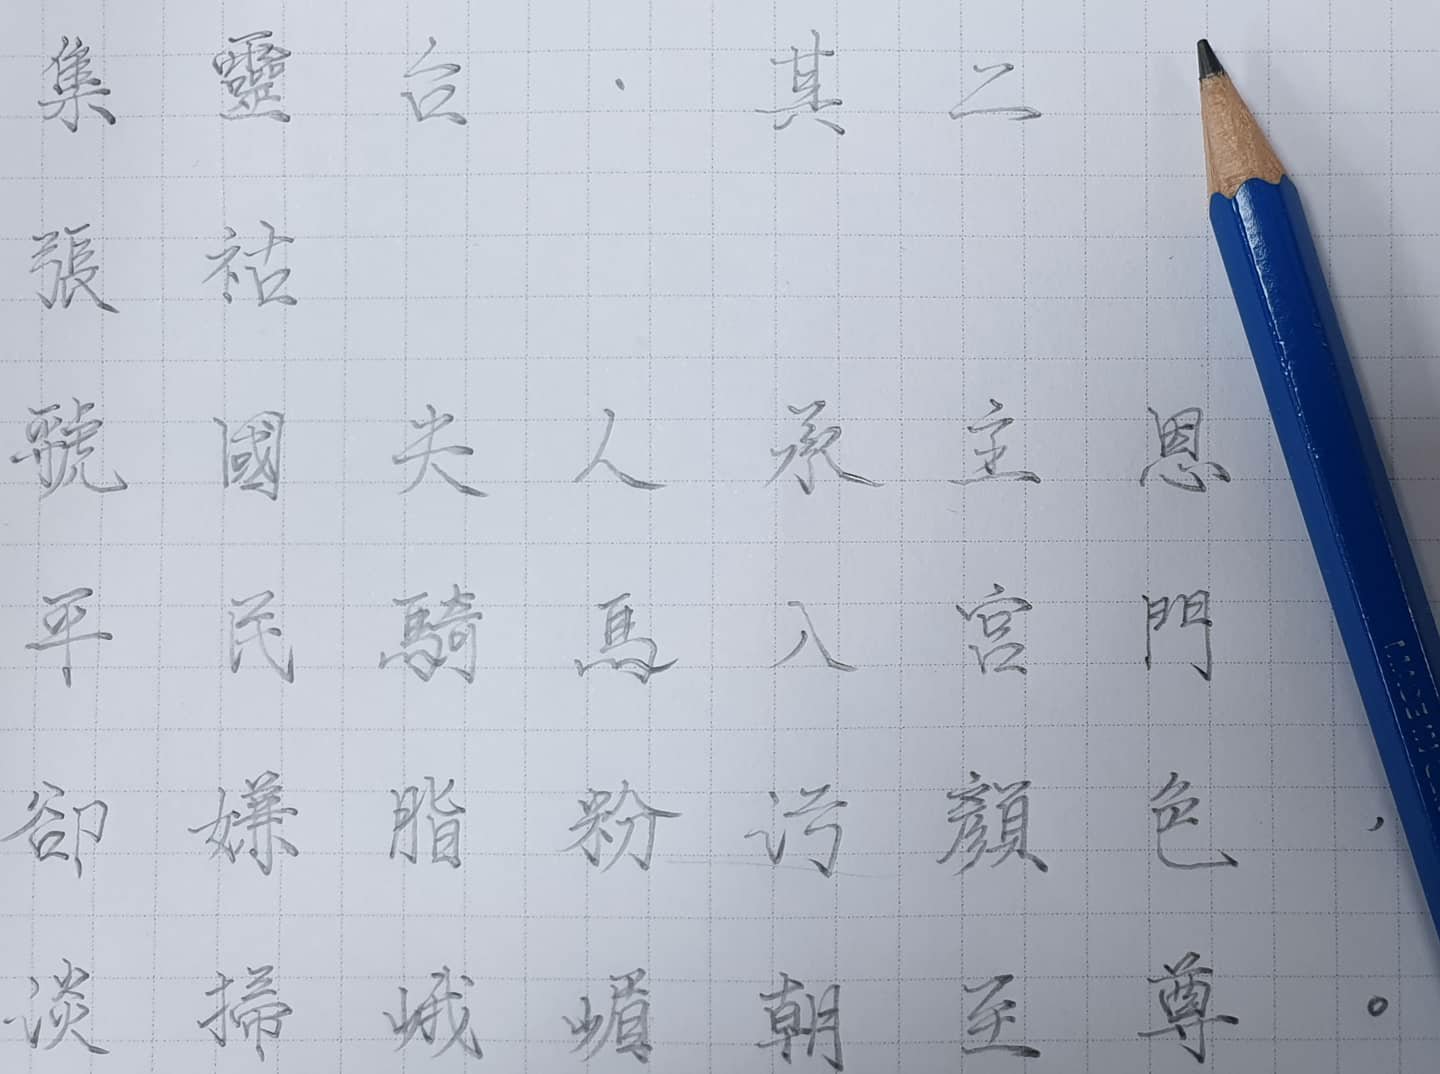 集靈台·其二
張祜
虢國夫人承主恩
平民騎馬入宮門
卻嫌脂粉污顏色,
淡掃峨嵋朝至尊。
MADE IN